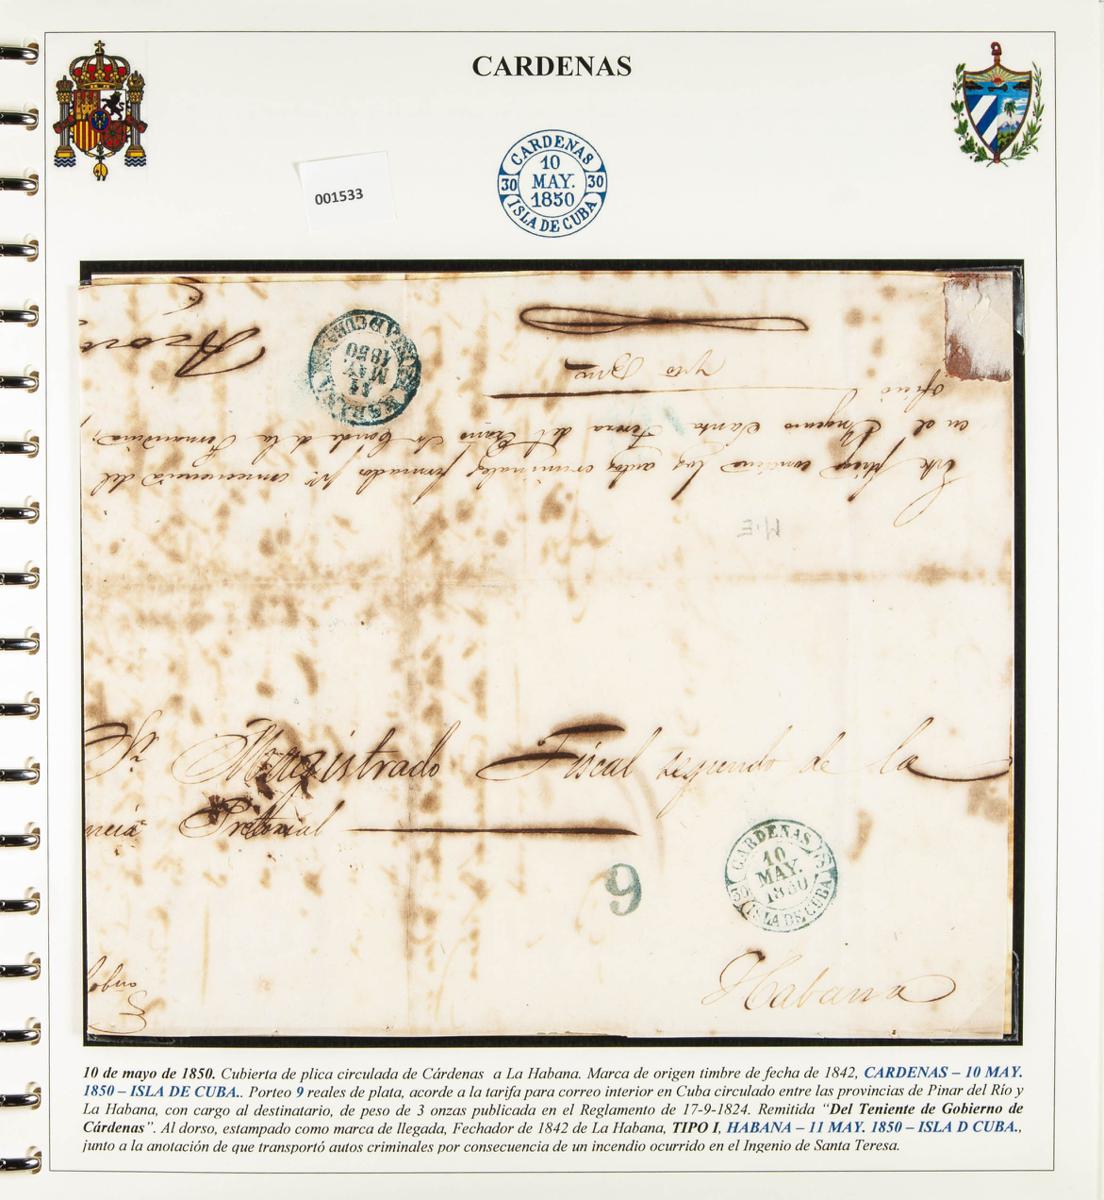 CARDENAS
001533
CARDENAS
10
MAY.
1850
30 30
ISLA DE CUBA
HABANA
11
MAY
1850
Este pliego contiene los autos criminales formados pr. consecuencia del
en el Ingenio Santa Teresa del Exmo Sr Conde de la Fernandina;
oficio
M.E
Sr Magistrado Fiscal segundo de la
Pretorial
9
CARDENAS
10
MAY.
1850
ISLA DE CUBA
Habana
10 de mayo de 1850. Cubierta de plica circulada de Cárdenas a La Habana. Marca de origen timbre de fecha de 1842, CARDENAS – 10 MAY.
1850 – ISLA DE CUBA.. Porteo 9 reales de plata, acorde a la tarifa para correo interior en Cuba circulado entre las provincias de Pinar del Río y
La Habana, con cargo al destinatario, de peso de 3 onzas publicada en el Reglamento de 17-9-1824. Remitida "Del Teniente de Gobierno de
Cárdenas". Al dorso, estampado como marca de llegada, Fechador de 1842 de La Habana, TIPO I, HABANA – 11 MAY. 1850 – ISLA D CUBA.,
junto a la anotación de que transportó autos criminales por consecuencia de un incendio ocurrido en el Ingenio de Santa Teresa.